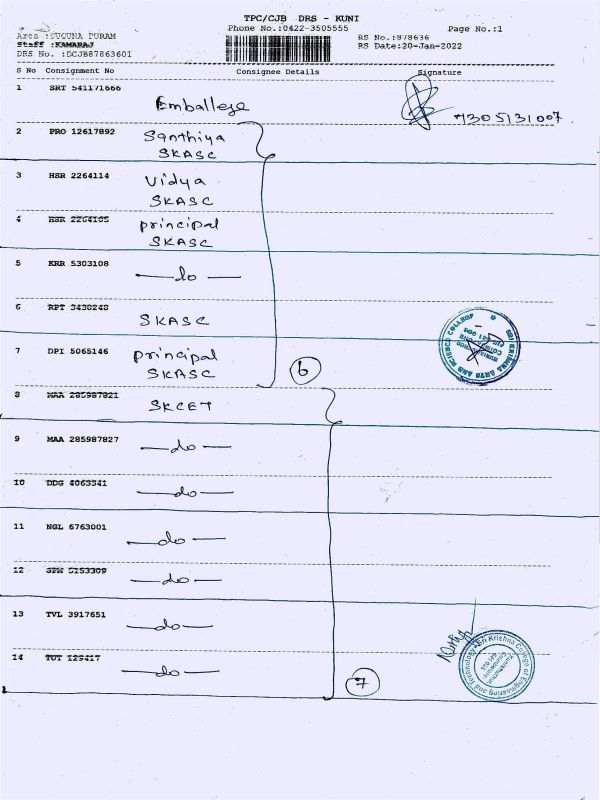 TPC/CJB DRS - KUNI
Phone No.:0422-3505555 Page No.:1
Area :SUGUNA PURAM RS No.:878636
Staff :KAMARAJ RS Date:20-Jan-2022
DRS No. :DCJB87863601
S No Consignment No Consignee Details Signature
1 SRT 541171666
Emballege 7305131007
2 PRO 12617892 Santhiya
SKASC
3 HSR 2264114 Vidya
SKASC
4 HSR 2264105 principal
SKASC
5 KRR 5303108 — do —
6 RPT 3430248 SKASC
7 DPI 5065146 principal
SKASC 6
SRI KRISHNA ARTS AND SCIENCE COLLEGE
8 MAA 285987821 SKCET
9 MAA 285987827 — do —
10 DDG 4063341 — do —
11 NGL 6763001 — do —
12 — do —
13 TVL 3917651 — do —
14 TUT 129417 — do — 7
Sri Krishna College of Engineering and Technology